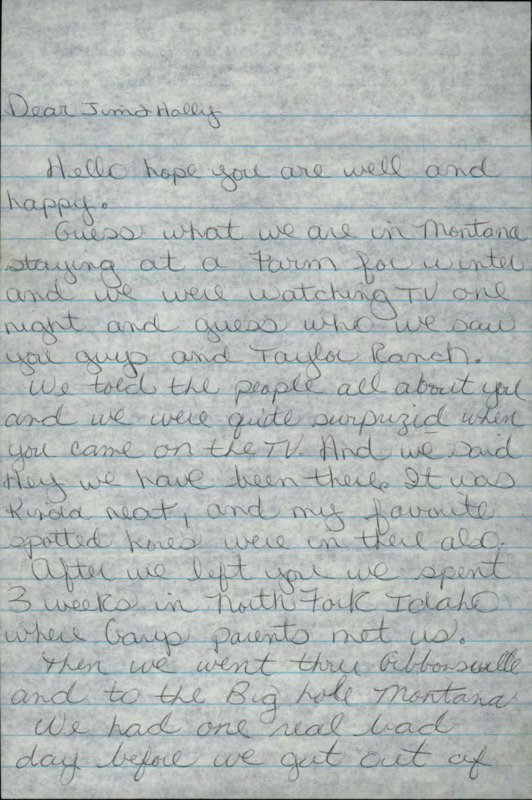 Dear Jim & Holly
Hello hope you are well and
happy.
Guess what we are in Montana
staying at a Farm for winter
and we were watching TV one
night and guess who we saw
you guys and Taylor Ranch.
We told the people all about you
and we were quite surpruzid when
you came on the TV. And we said
Hey we have been there. It was
Kinda neat, and my favorite
spotted horses were in there also.
After we left you we spent
3 weeks in North Fork Idaho
where Garys parents met us.
Then we went thru Gibbonsville
and to the Big hole Montana
We had one real bad
day before we got out of